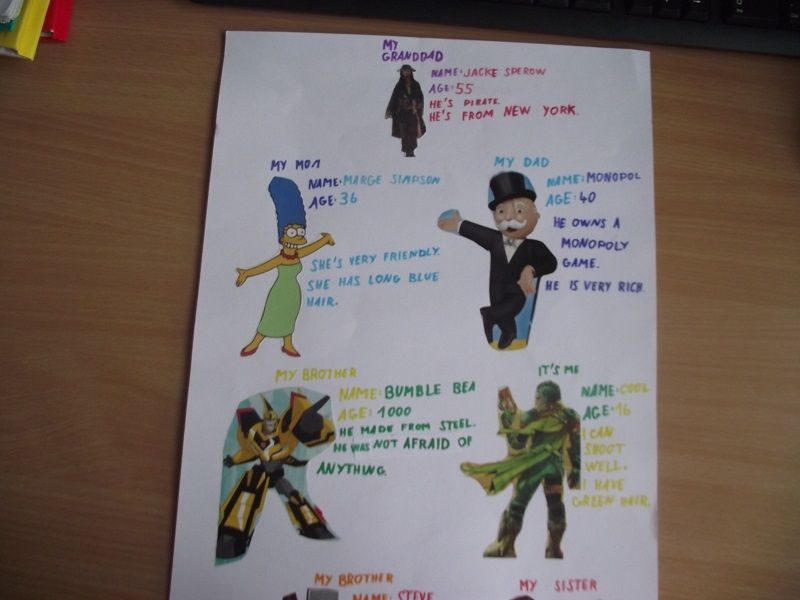 MY
GRANDDAD
NAME: JACKE SPEROW
AGE: 55
HE'S PIRATE.
HE'S FROM NEW YORK.
MY MOM
NAME: MARGE SIMPSON
AGE: 36
SHE'S VERY FRIENDLY.
SHE HAS LONG BLUE
HAIR.
MY DAD
NAME: MONOPOL
AGE: 40
HE OWNS A
MONOPOLY
GAME.
HE IS VERY RICH.
MY BROTHER
NAME: BUMBLE BEA
AGE: 1000
HE MADE FROM STEEL.
HE WAS NOT AFRAID OF
ANYTHING.
IT'S ME
NAME: COOL
AGE: 16
I CAN
SHOOT
WELL.
I HAVE
GREEN HAIR.
MY BROTHER
NAME: STEVE
MY SISTER